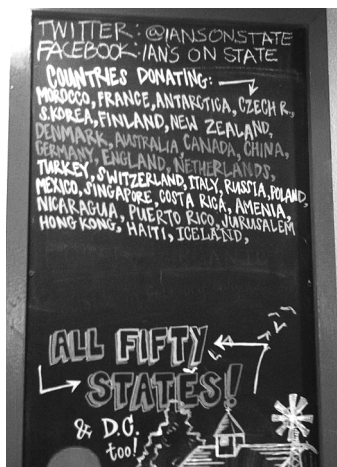 TWITTER: @IANSONSTATE
FACEBOOK: IAN'S ON STATE
COUNTRIES DONATING:
MOROCCO, FRANCE, ANTARCTICA, CZECH R.,
S.KOREA, FINLAND, NEW ZEALAND,
DENMARK, AUSTRALIA, CANADA, CHINA,
GERMANY, ENGLAND, NETHERLANDS,
TURKEY, SWITZERLAND, ITALY, RUSSIA, POLAND,
MEXICO, SINGAPORE, COSTA RICA, AMENIA,
NICARAGUA, PUERTO RICO, JURUSALEM
HONG KONG, HAITI, ICELAND,
ALL FIFTY
STATES!
& D.C.
too!